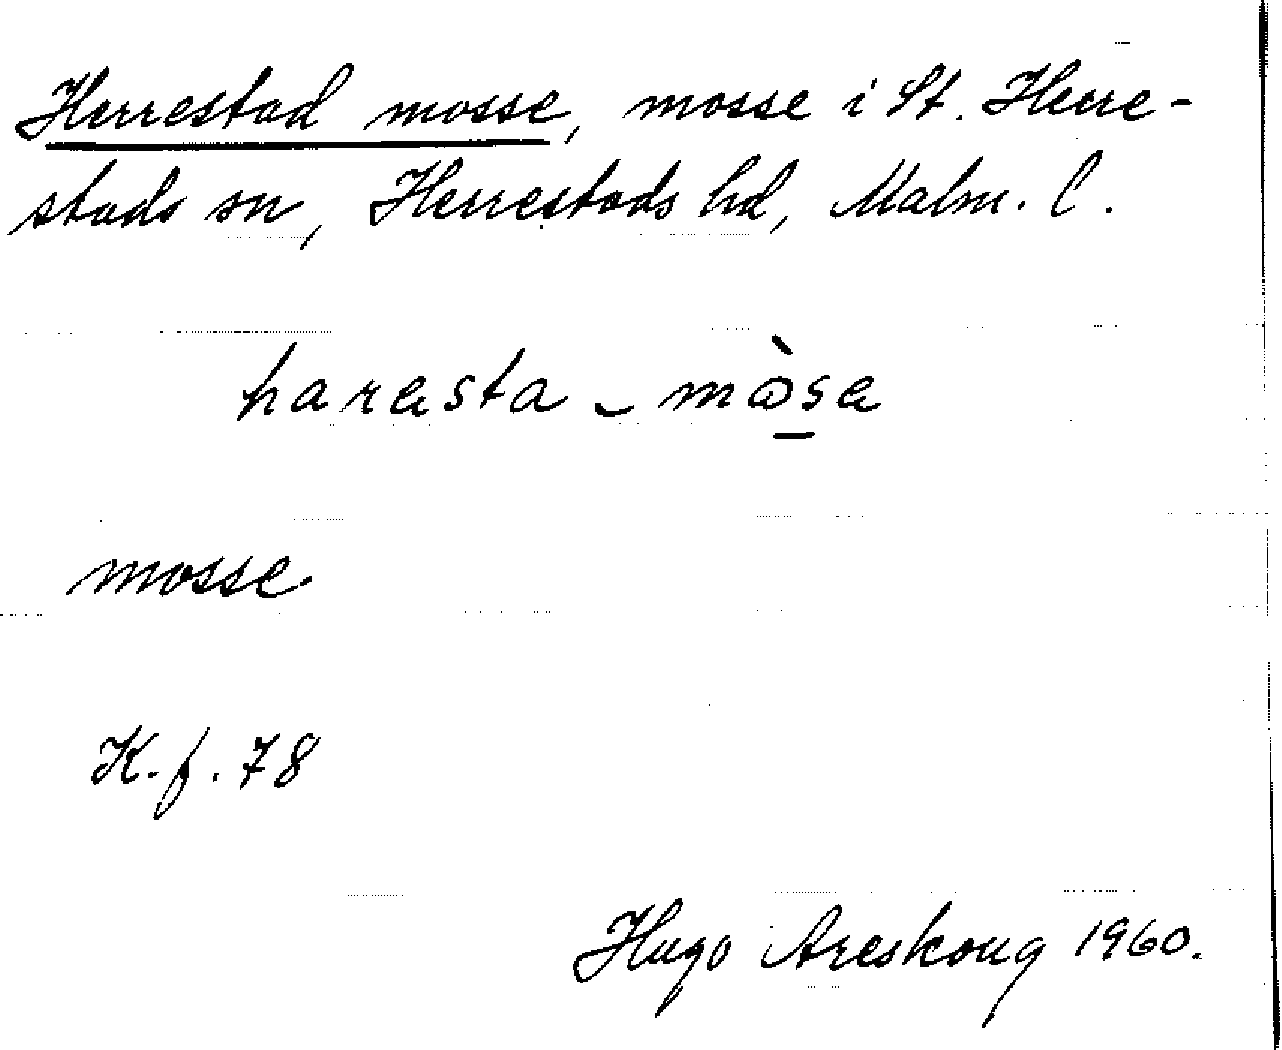 Herrestad mosse, mosse i St. Herre-
stads sn, Herrestads hd, Malm. l.
harasta - mòsa
mosse
K. f. 78
Hugo Areskoug 1960.